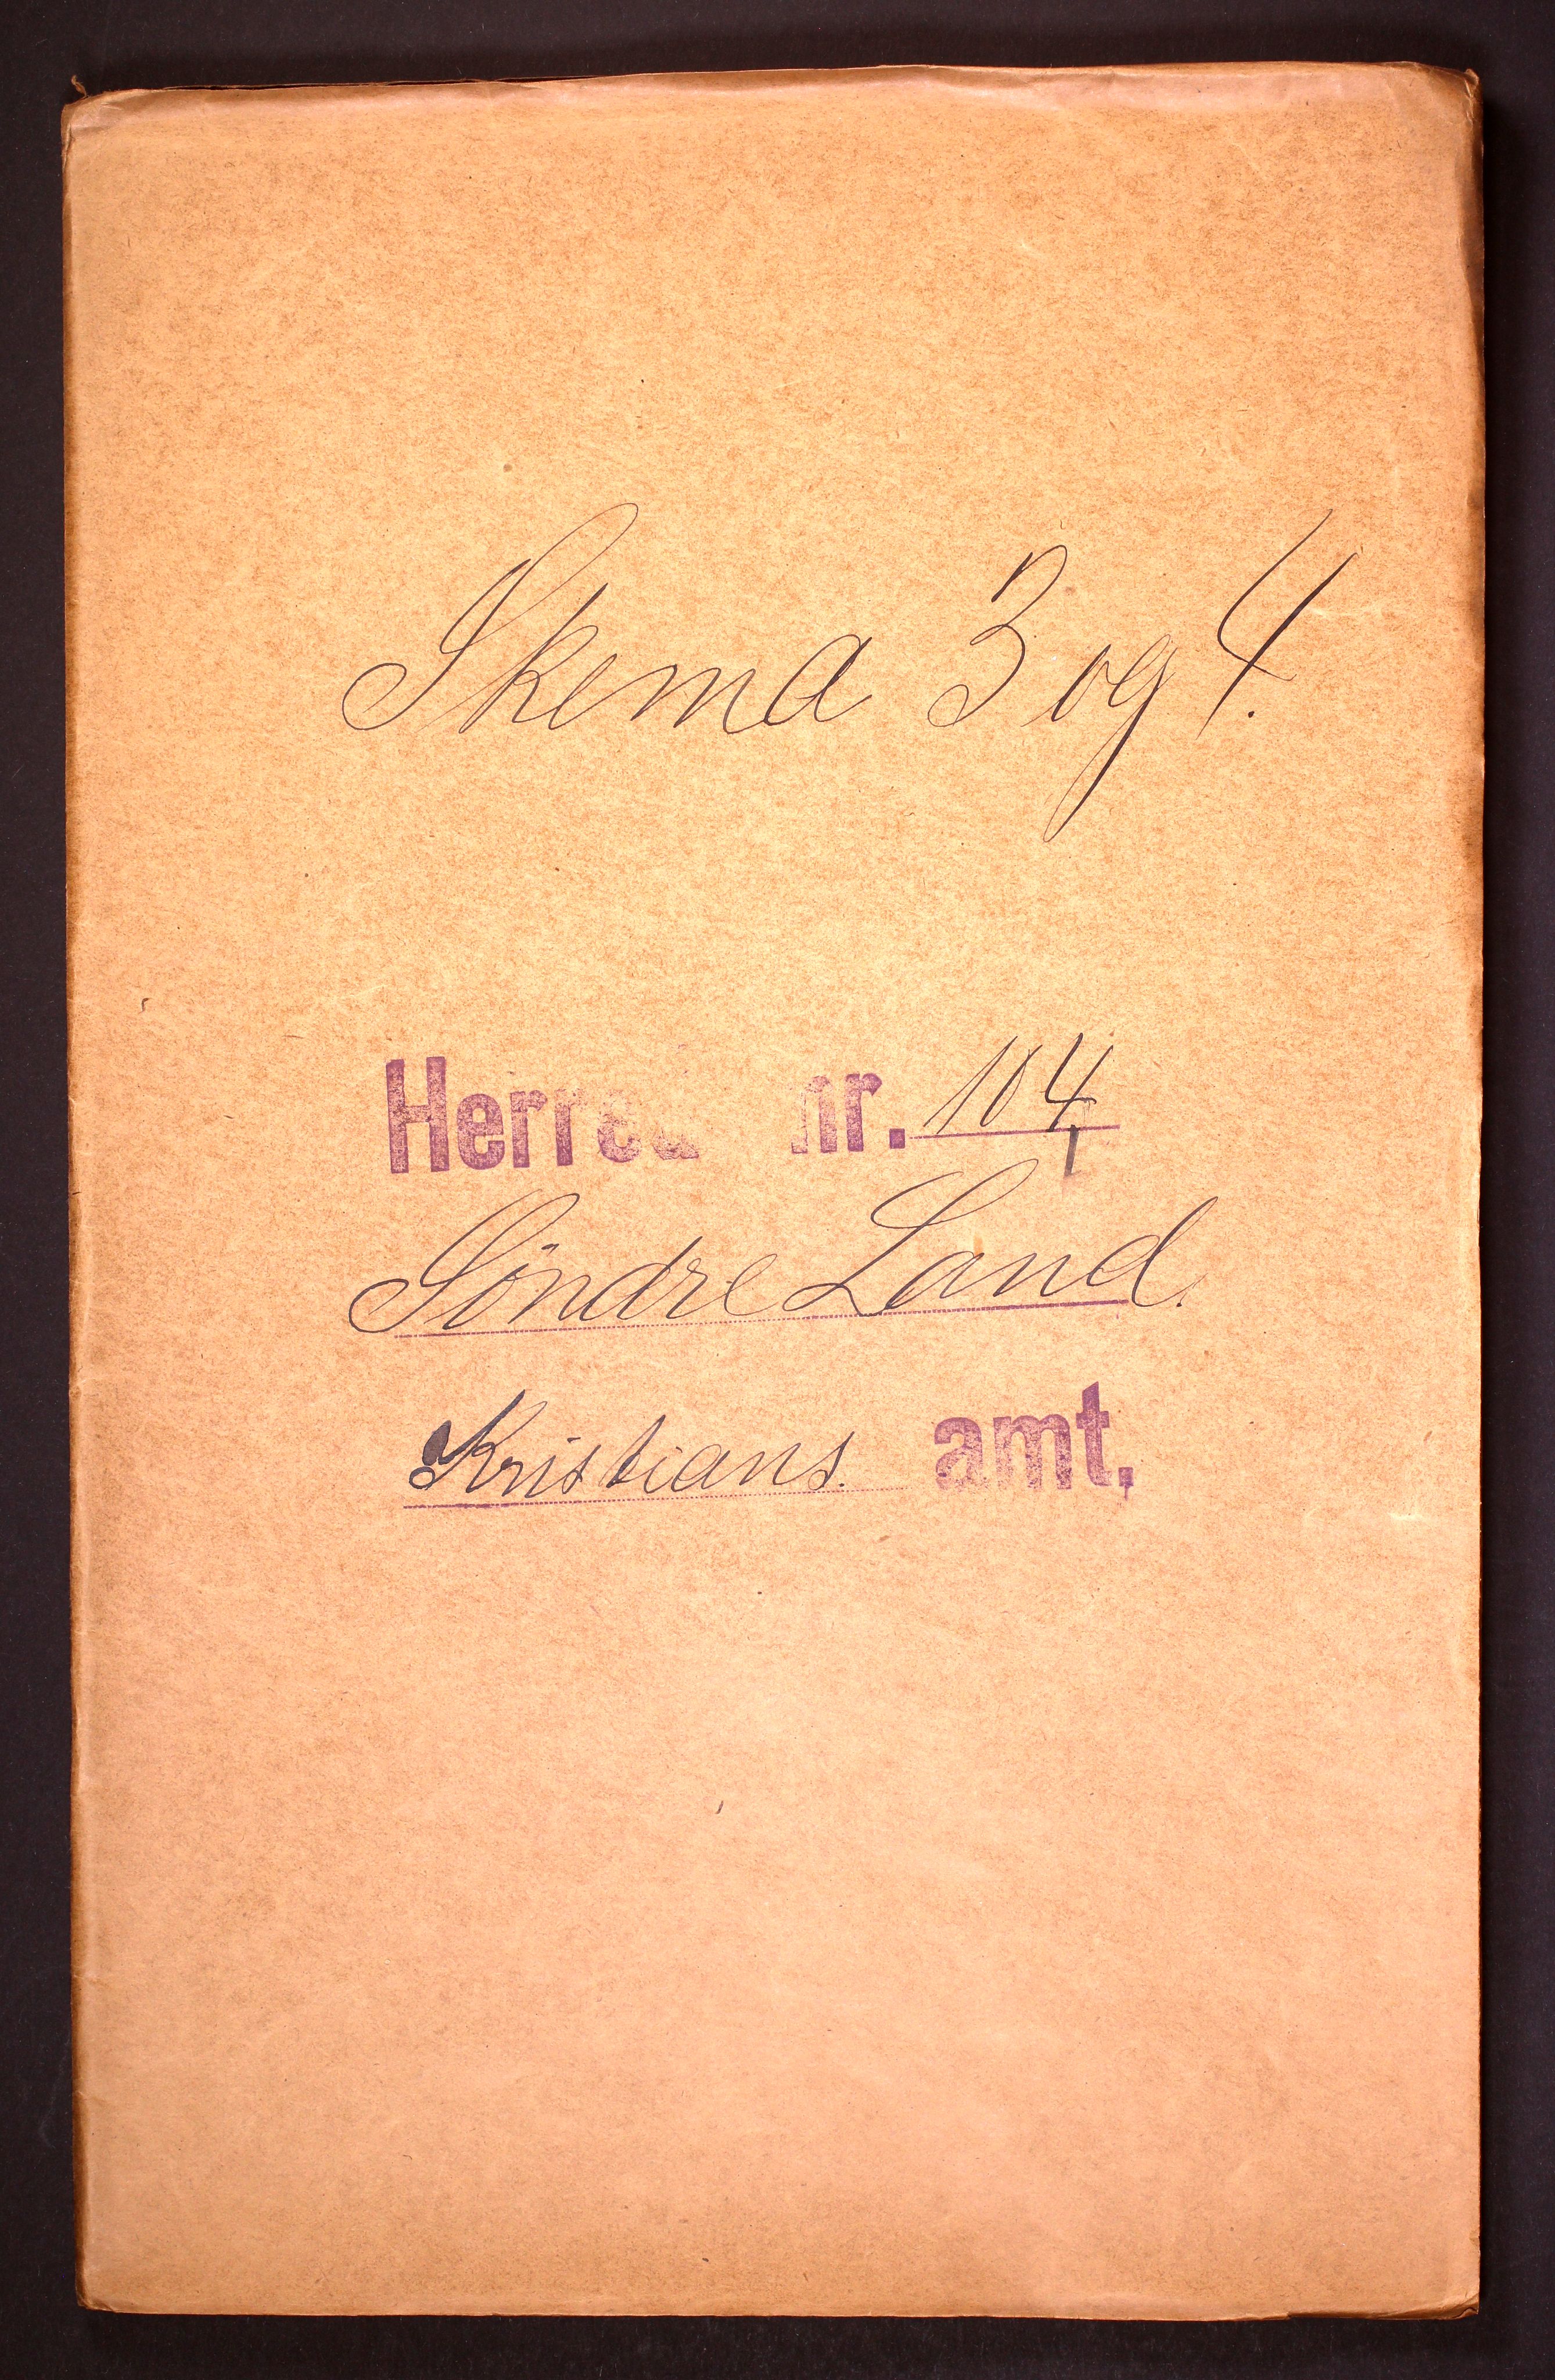 Skema 3 og 4.
Herred nr. 104
Söndre Land.
Kristians. amt.